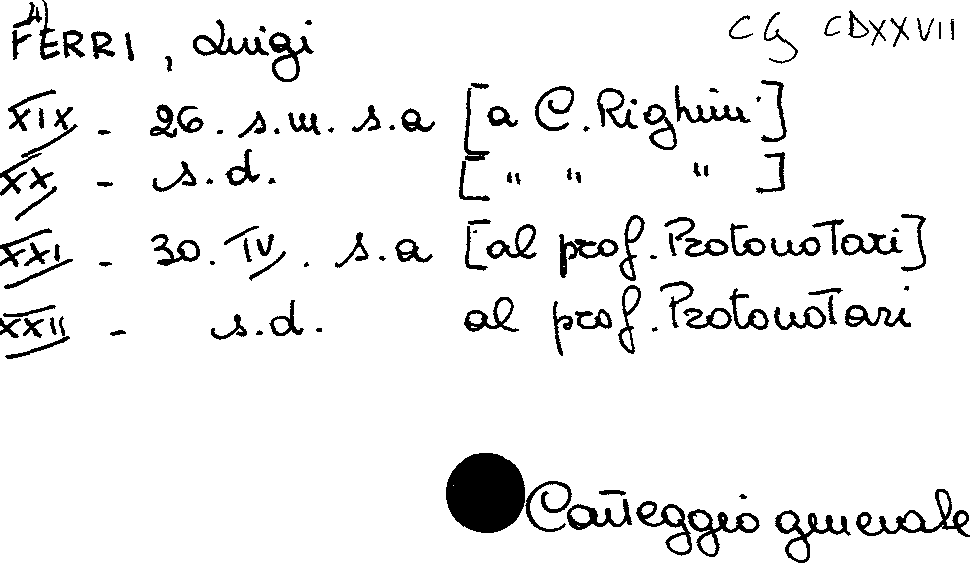 4)
FERRI, Luigi CG CDXXVII
XIX - 26. s.m. s.a [a C. Righini]
XX - s.d. [" " "]
XXI - 30. IV. s.a [al prof. Protonotari]
XXII - s.d. al prof. Protonotari
Carteggio generale